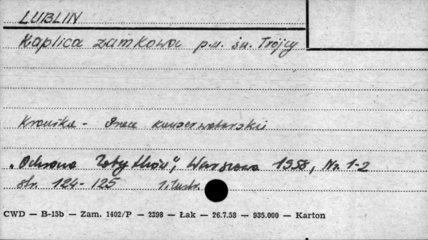 LUBLIN
Kaplica zamkowa p.w. św. Trójcy
Kronika - Prace konserwatorskie
"Ochrona Zabytków", Warszawa 1958, Nr 1-2
str. 124-125 ilustr.
CWD — B-15b — Zam. 1402/P — 2398 — Łak — 26.7.58 — 935.000 — Karton